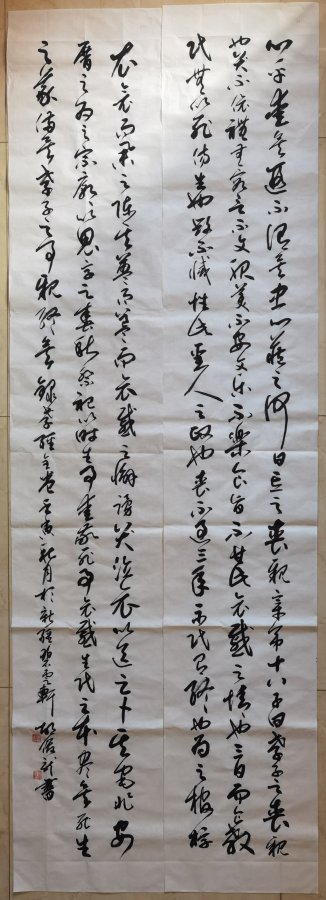 心乎愛矣遐不謂矣中心藏之何日忘之喪親章第十八子曰孝子之喪親
也哭不偯禮無容言不文服美不安聞樂不樂食旨不甘此哀戚之情也三日而食教
民無以死傷生毀不滅性此聖人之政也喪不過三年示民有終也為之棺椁
衣衾而舉之陳其簠簋而哀戚之擗踊哭泣哀以送之卜其宅兆安
厝之為之宗廟以鬼享之春秋祭祀以時生事愛敬死事哀戚生民之本盡矣死生
之義備矣孝子之事親終矣錄孝經全卷壬寅秋月於新疆軒書